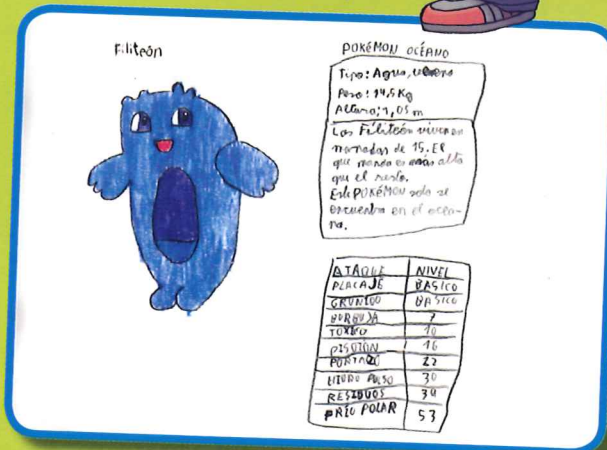 Filiteón
POKÉMON OCÉANO
Tipo: Agua, veneno
Peso: 14,5 Kg
Altura: 1,05 m
Los Filiteón viven en
manadas de 15. El
que manda es más alto
que el resto.
Este POKÉMON solo se
encuentra en el océa-
no.
ATAQUE NIVEL
PLACAJE BASICO
GRUÑIDO BASICO
BURBUJA 7
TOXICO 10
PISOTÓN 16
PORTAZO 22
HIDRO PULSO 30
RESIDUOS 39
FRÍO POLAR 53